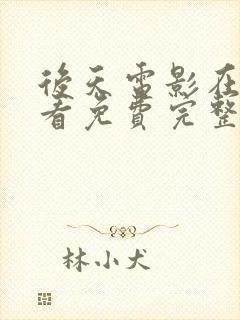 後天雷影在
看免費完整
林小犬